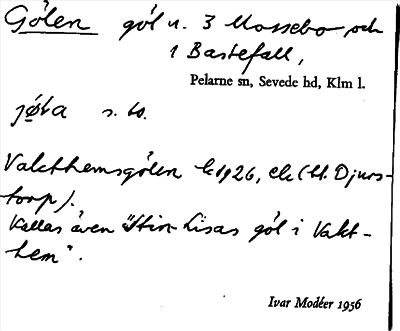 Gölen göl u. 3 Mossebo och
1 Bastefall,
Pelarne sn, Sevede hd, Klm l.
s. bo.
Vakthemsgölen k 1926, ek (bl. Djurs-
torp).
Kallas även "Stin-Lisas göl i Vakt-
hem".
Ivar Modéer 1956